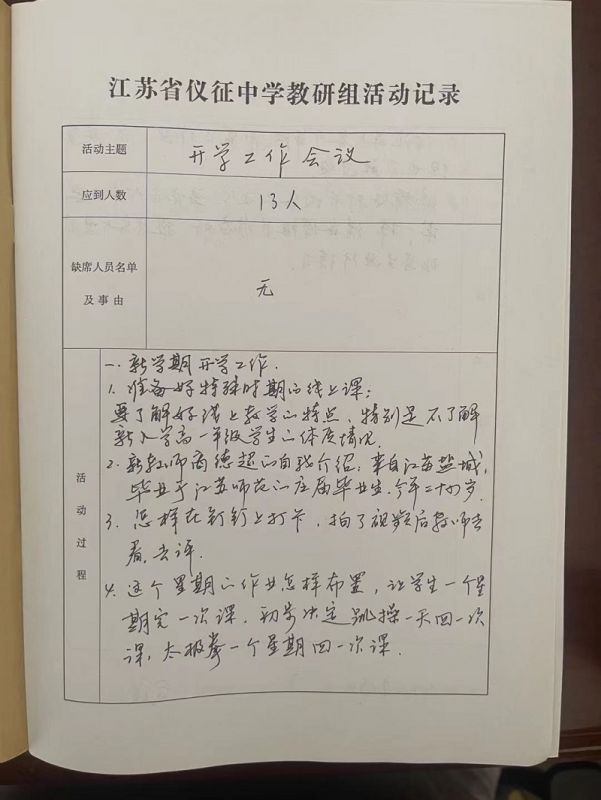 江苏省仪征中学教研组活动记录
活动主题
开学工作会议
应到人数
13人
缺席人员名单
及事由
无
活动过程
一. 新学期开学工作.
1. 准备好特殊时期的线上课;
要了解好线上教学的特点、特别是不了解
新入学高一年级学生的体质情况.
2. 新教师商德超的自我介绍: 来自江苏盐城,
毕业于江苏师范的应届毕业生. 今年二十岁.
3. 怎样在钉钉上打卡, 拍了视频后教师去
看, 去评.
4. 这个星期的作业怎样布置, 让学生一个星
期完一次课. 初步决定跳操一天四一次
课, 太极拳一个星期四一次课.